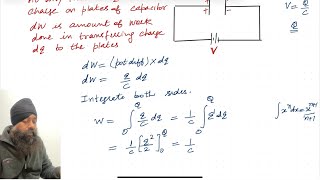 charge on plates of capacitor
dW is amount of work
done in transferring charge
dq to the plates
+
V
V = Q/C
dW = (pot diff) × dq
dW = q/C dq
Integrate both sides.
W = ∫₀^Q q/C dq = 1/C ∫₀^Q q dq
= 1/C [q²/2]₀^Q = 1/C
∫xⁿdx = xⁿ⁺¹/n+1